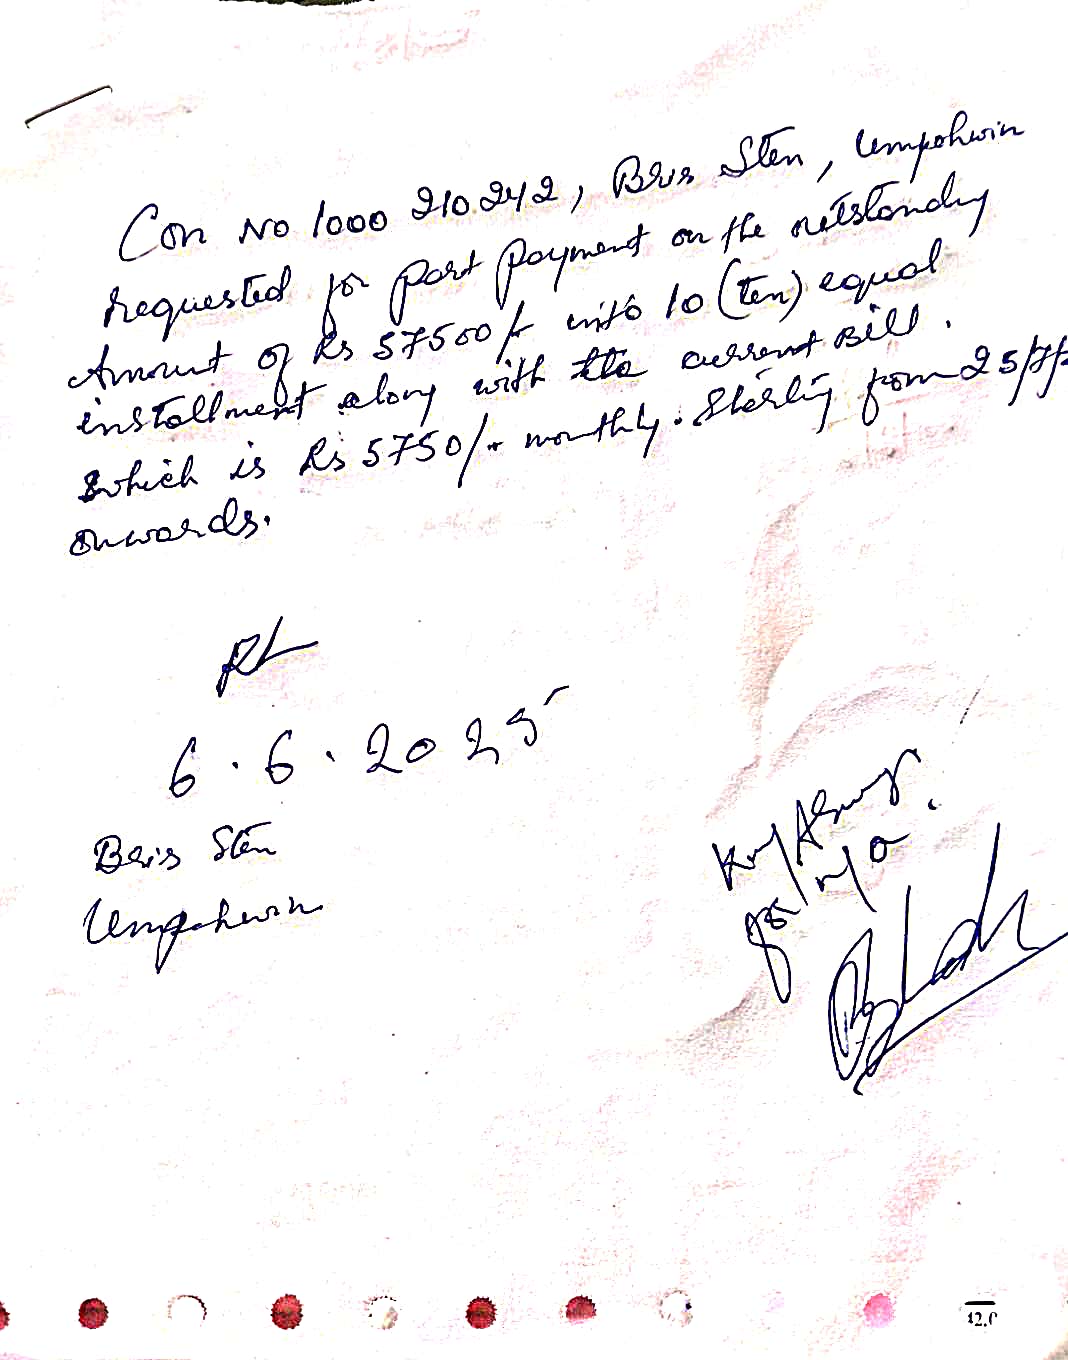 Con No 1000 210242, Bris Sten, Umpohwin
requested for part payment on the outstanding
Amount of Rs 57500/- into 10 (ten) equal
installment along with the current Bill.
which is Rs 5750/- monthly. Starting from 25/7/2
onwards.
6.6.2025
Bris Sten
Umpohwin
for n/a
12.0